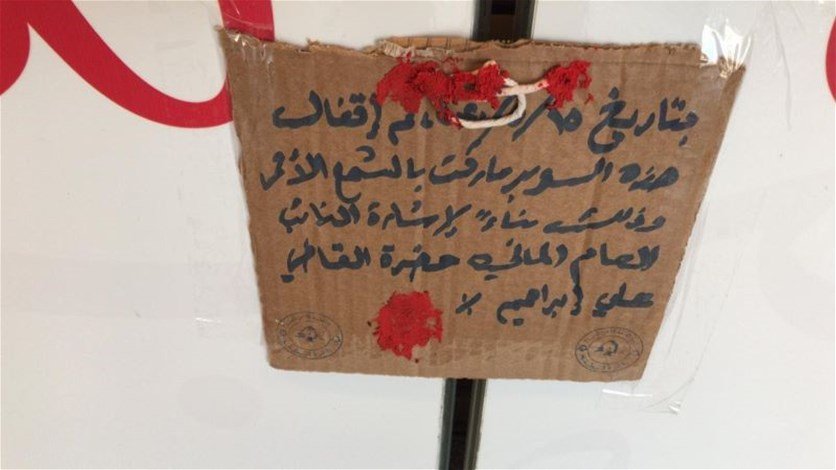 بتاريخ ١٥/ تم إقفال
هذه السوبر ماركت بالشمع الأحمر
وذلك بناءً لإشارة النائب
العام المالي حضرة القاضي
علي إبراهيم ٪